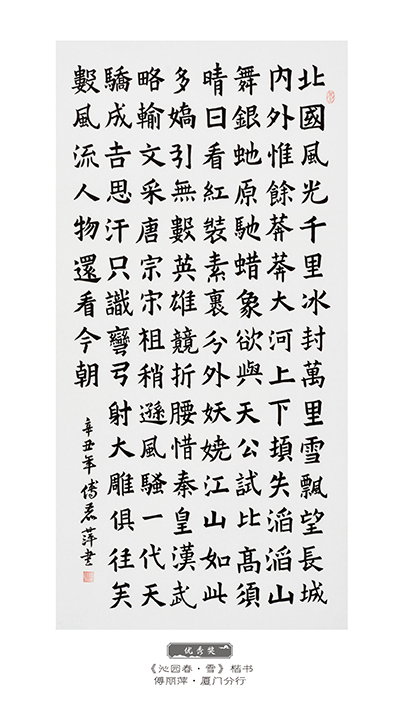 北國風光千里冰封萬里雪飄望長城
内外惟餘莽莽大河上下頓失滔滔山
舞銀虵原馳蜡象欲與天公試比高須
晴日看紅裝素裹分外妖嬈江山如此
多嬌引無數英雄競折腰惜秦皇漢武
略輸文采唐宗宋祖稍遜風騷一代天
驕成吉思汗只識彎弓射大雕俱往矣
數風流人物還看今朝
辛丑年傅麗萍書
优秀奖
《沁园春·雪》楷书
傅丽萍·厦门分行